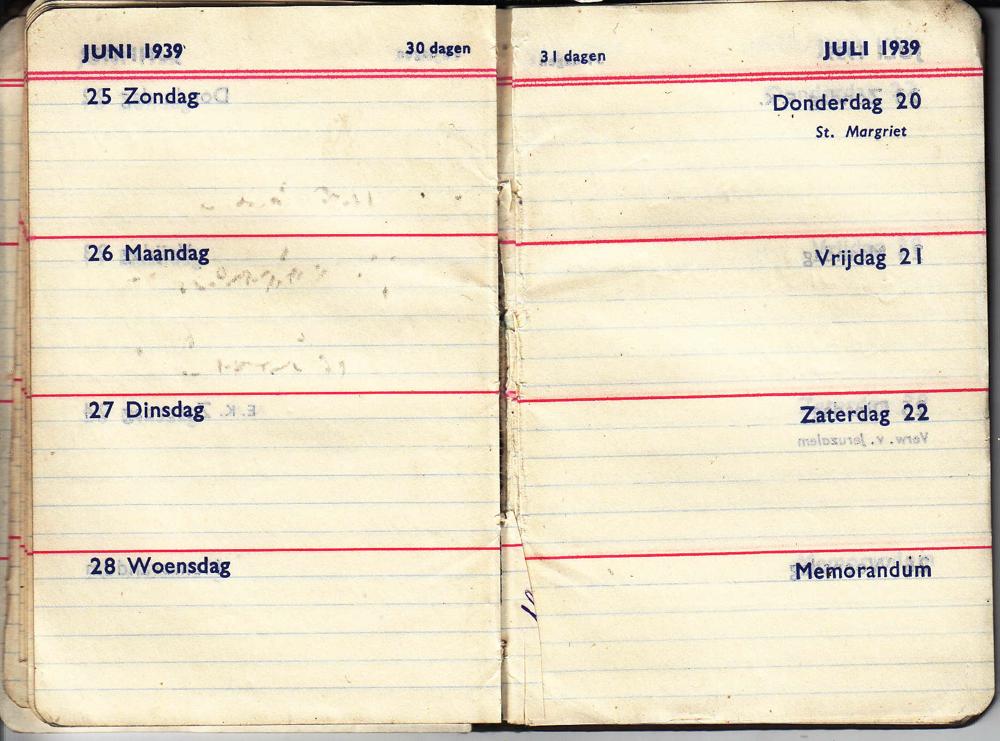 JUNI 1939
30 dagen
25 Zondag
26 Maandag
27 Dinsdag
28 Woensdag
31 dagen
JULI 1939
Donderdag 20
St. Margriet
Vrijdag 21
Zaterdag 22
Verw. v. Jeruzalem
Memorandum